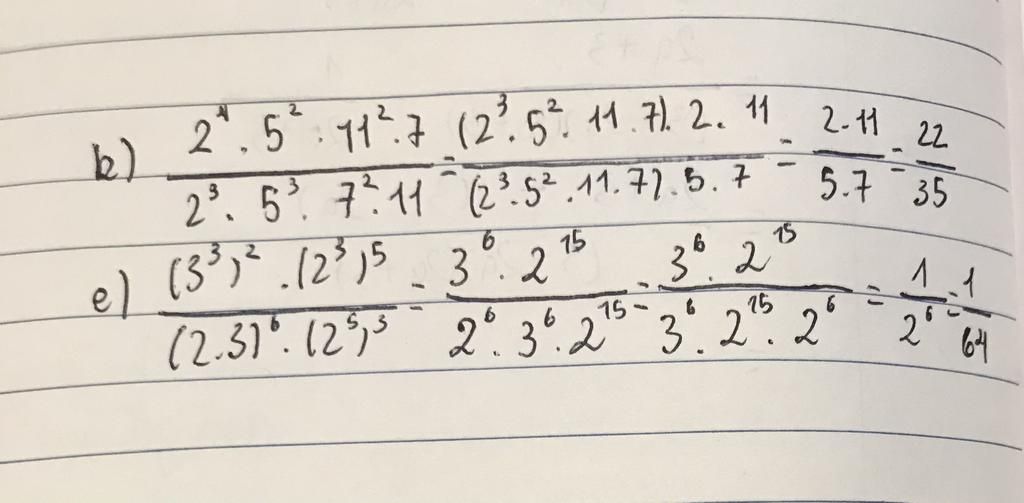 b) \frac{2^4 . 5^2 . 11^2 . 7}{2^3 . 5^3 . 7^2 . 11} = \frac{(2^3 . 5^2 . 11 . 7) . 2 . 11}{(2^3 . 5^2 . 11 . 7) . 5 . 7} = \frac{2 . 11}{5 . 7} = \frac{22}{35}
e) \frac{(3^3)^2 . (2^3)^5}{(2 . 3)^6 . (2^5)^3} = \frac{3^6 . 2^{15}}{2^6 . 3^6 . 2^{15}} = \frac{3^6 . 2^{15}}{3^6 . 2^{15} . 2^6} = \frac{1}{2^6} = \frac{1}{64}